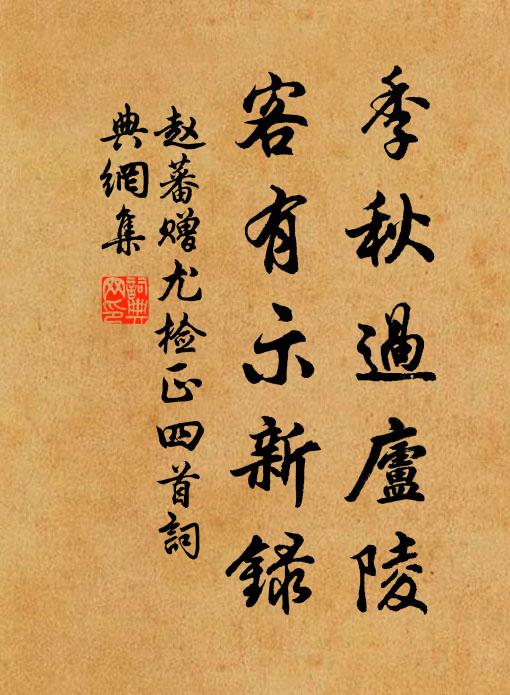 季秋過廬陵
客有示新録
赵蕃赠尤检正四首詞
典網集
詞典网印